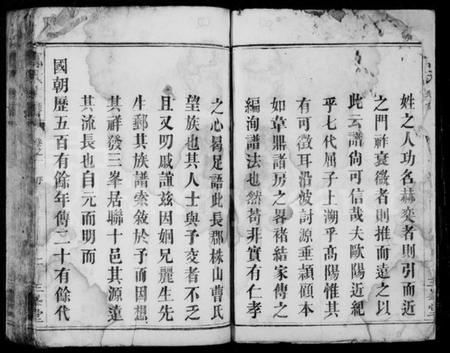 姓之人功名赫奕者則引而近
之門祚衰微者則推而遠之以
此云譜尙可信哉夫歐陽近紀
乎七代屈子上溯乎高陽惟其
有可徵耳沿被討源垂穎顧本
如草鼎諸房之畧褚結家傳之
編洵譜法也然苟非實有仁孝
之心曷足語此長郡株山曹氏
望族也其人士與予交者不乏
且又叨戚誼兹因姻兄麗生先
生郵其族譜索敘於予而因想
其祥發三峯居聯十邑其源遠
其流長也自元而明而
國朝歷五百有餘年傳二十有餘代